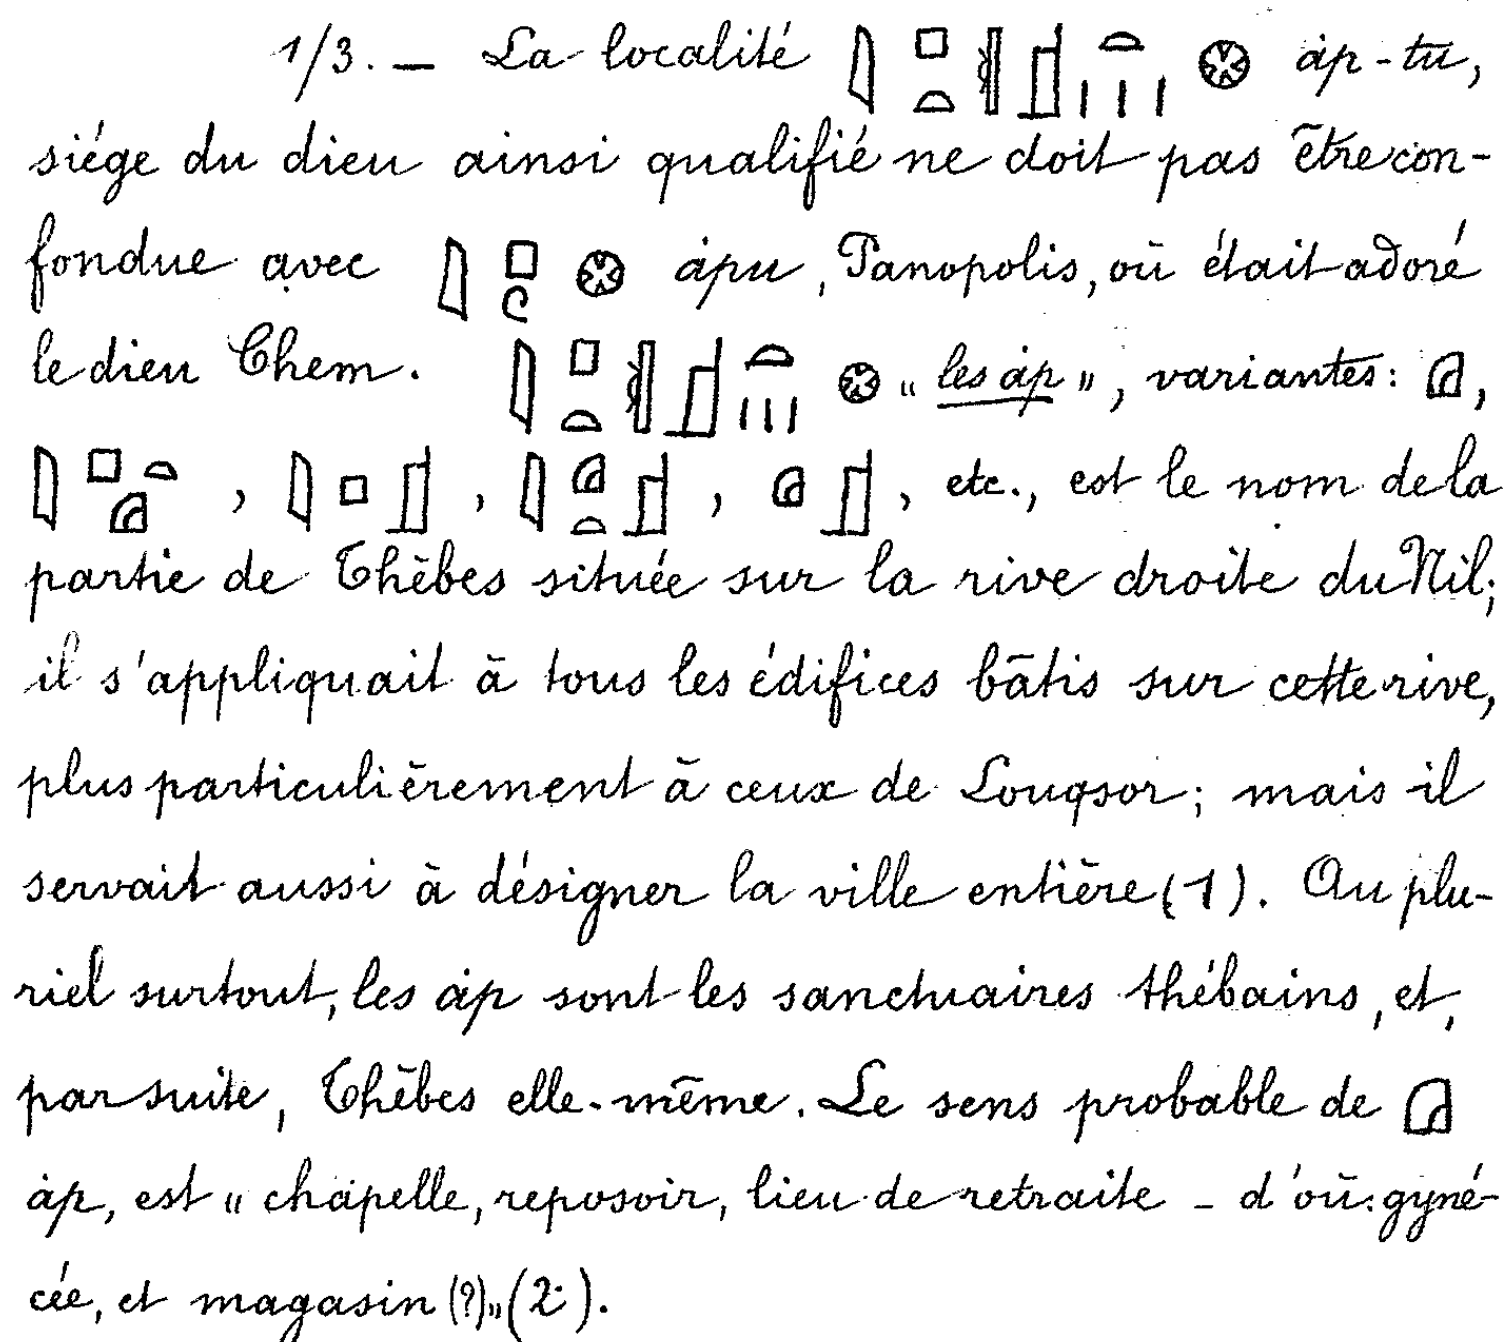 1/3. — La localité 𓇋𓊪𓏏𓊨𓏏𓏥𓊖 áp-tu,
siége du dieu ainsi qualifié ne doit pas être con-
fondue avec 𓇋𓊪𓏲𓊖 ápu, Panopolis, où était adoré
le dieu Chem. 𓇋𓊪𓏏𓊨𓏏𓏥𓊖 " les áp ", variantes: ,
, 𓇋𓊪𓊨, , , etc., est le nom de la
partie de Thèbes située sur la rive droite du Nil;
il s'appliquait à tous les édifices bâtis sur cette rive,
plus particulièrement à ceux de Louqsor; mais il
servait aussi à désigner la ville entière (1). Au plu-
riel surtout, les áp sont les sanctuaires thébains, et,
par suite, Thèbes elle-même. Le sens probable de
áp, est " chapelle, reposoir, lieu de retraite - d'où: gyné-
cée, et magasin (?)" (2).